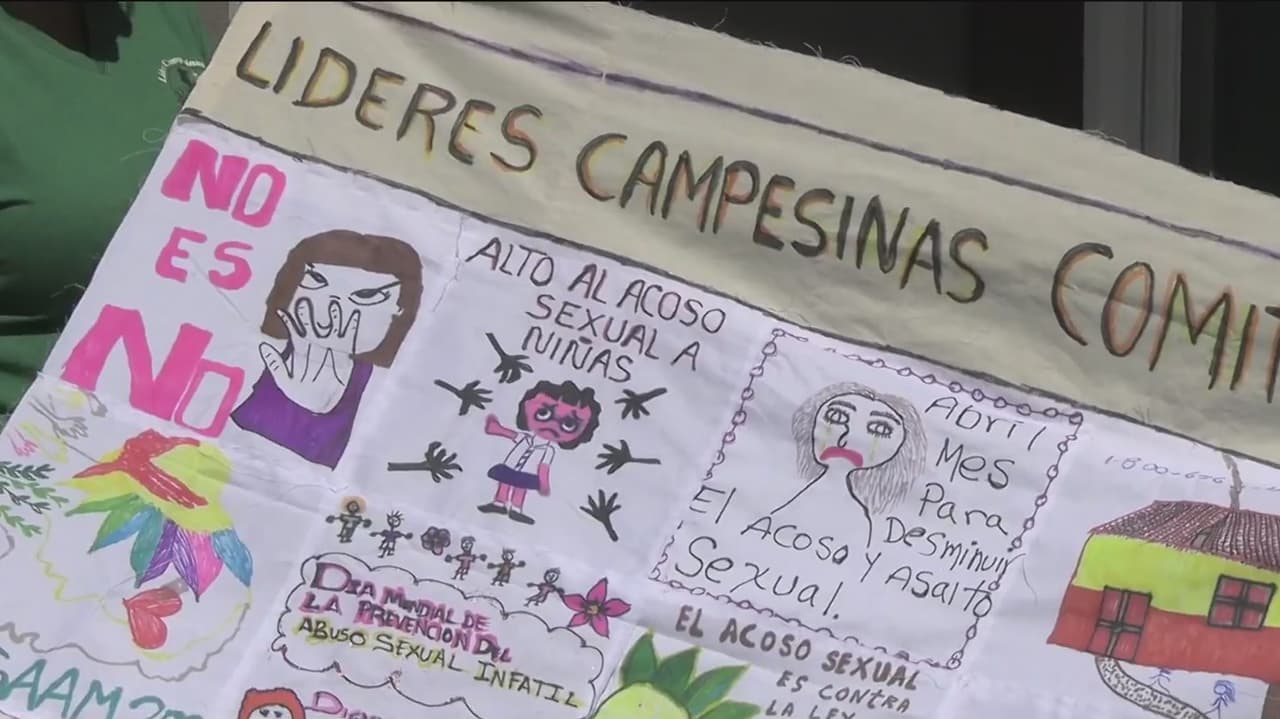 LIDERES CAMPESINAS
NO
ES
NO
ALTO AL ACOSO
SEXUAL A
NIÑAS
Abril
Mes
Para
Desminuir
El Acoso y Asalto
Sexual.
DIA MUNDIAL DE
LA PREVENCION DEL
ABUSO SEXUAL INFATIL
EL ACOSO SEXUAL
ES CONTRA
LA LEY